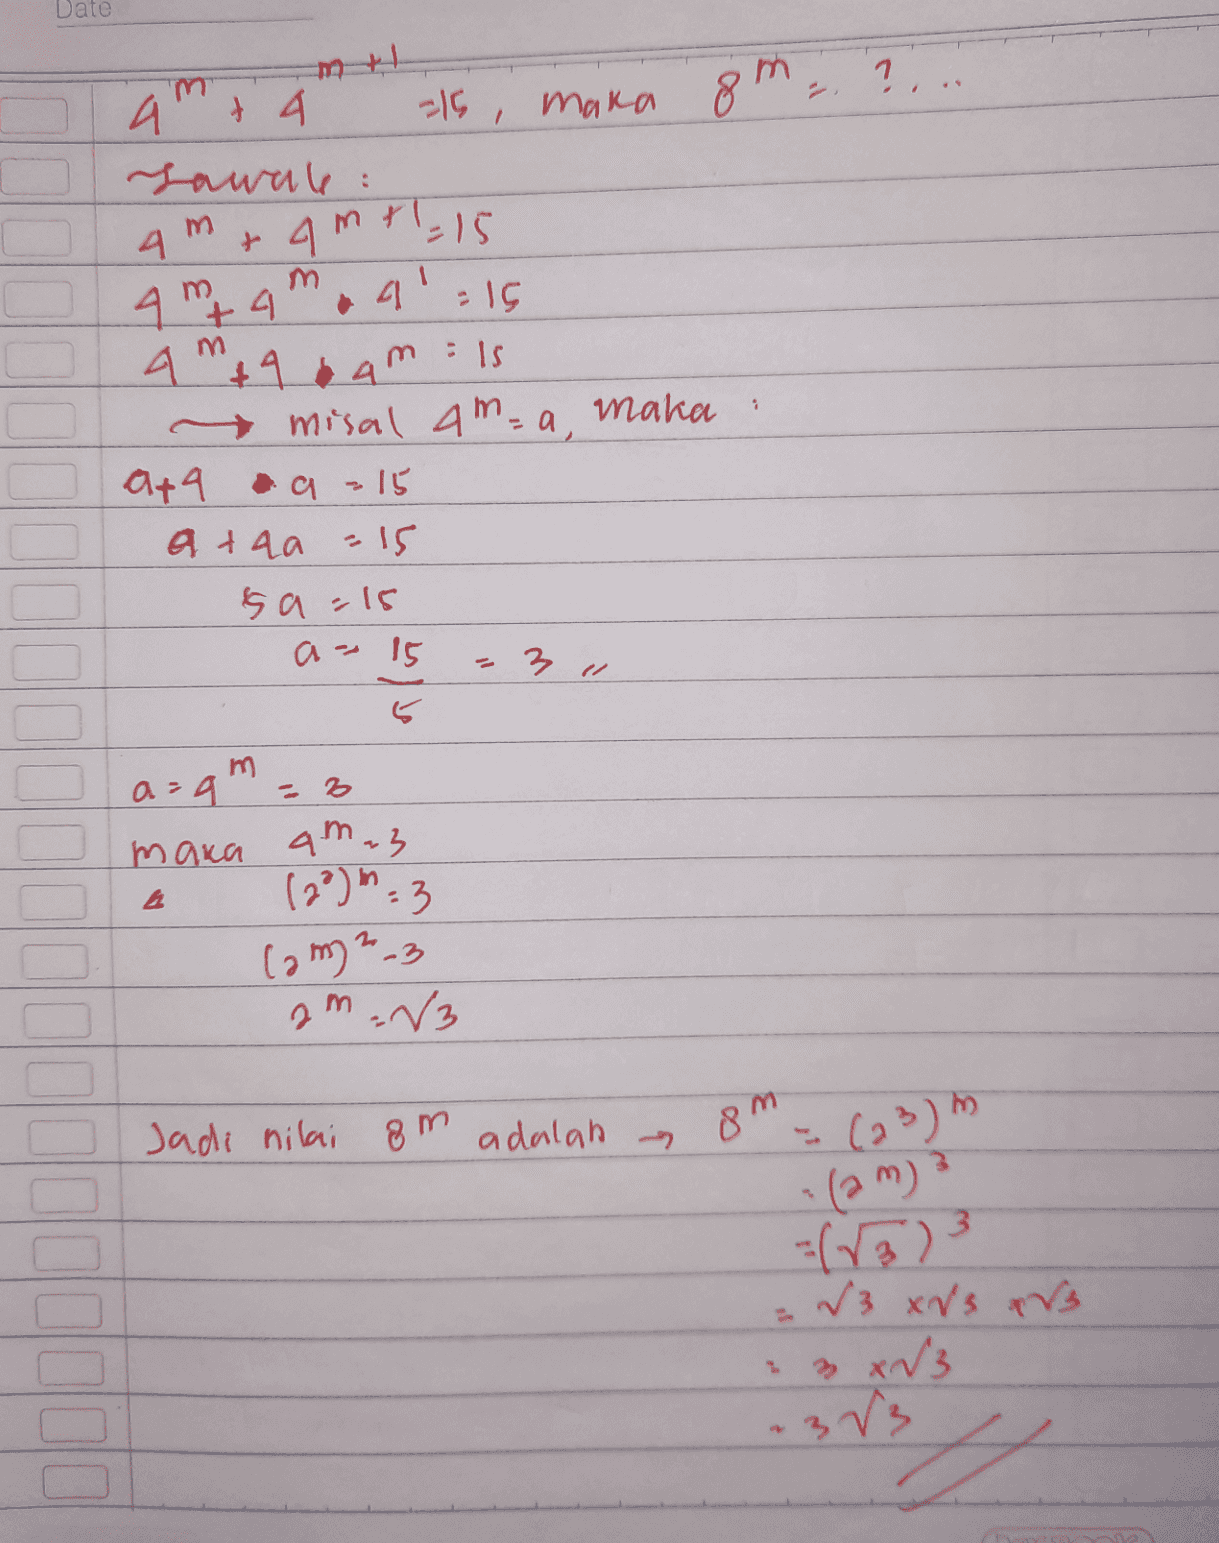 Date
4^m + 4^(m+1) = 15, maka 8^m = ?...
Jawab :
4^m + 4^(m+1) = 15
4^m + 4^m • 4^1 = 15
4^m + 4 • 4^m = 15
→ misal 4^m = a, maka :
a + 4 • a = 15
a + 4a = 15
5a = 15
a = 15/5 = 3 //
a = 4^m = 3
maka 4^m = 3
(2^2)^m = 3
(2^m)^2 = 3
2^m = √3
Jadi nilai 8^m adalah → 8^m = (2^3)^m
= (2^m)^3
= (√3)^3
= √3 x √3 x √3
= 3 x √3
= 3√3 //